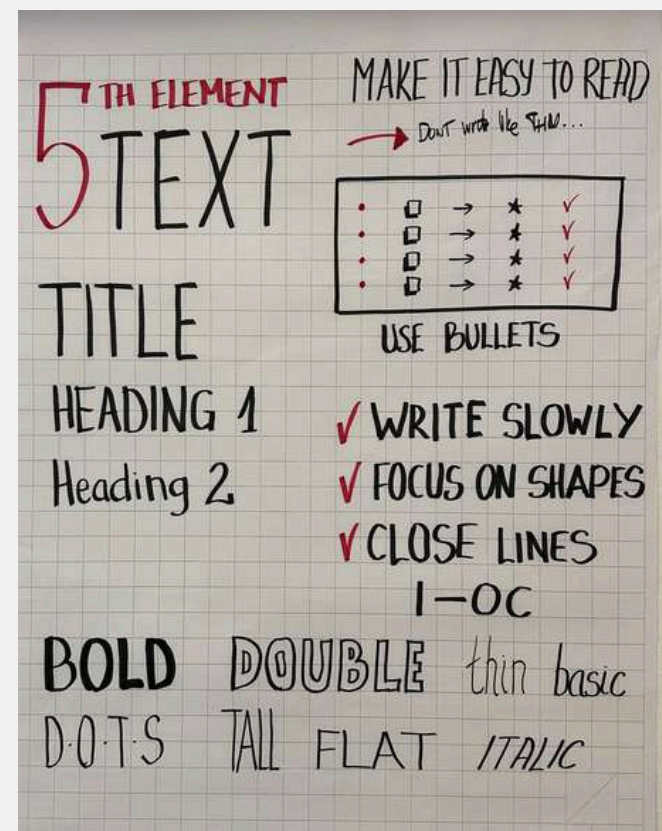 5TH ELEMENT
TEXT
TITLE
HEADING 1
Heading 2
MAKE IT EASY TO READ
→ DON'T write like THIS...
• ❏ → ★ ✓
• ❏ → ★ ✓
• ❏ → ★ ✓
• ❏ → ★ ✓
USE BULLETS
✓ WRITE SLOWLY
✓ FOCUS ON SHAPES
✓ CLOSE LINES
I—OC
BOLD DOUBLE thin basic
D·O·T·S TALL FLAT ITALIC